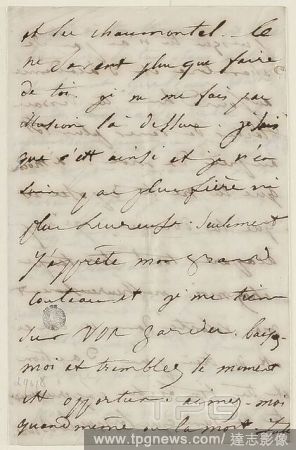 et les chaumontel. Ce
ne savent plus que faire
de toi. je ne me fais pas
illusion là dessus je sais
que c'est ainsi et je n'en
suis pas plus fière ni
plus heureuse. Seulement
j'apprête mon grand
couteau et je me tiens
sur VOS gardes. baisez
moi et tremblez, le moment
est opportun. aimez-moi
quand même ou la mort.
TPG
www.tpgnews.com / 達志影像